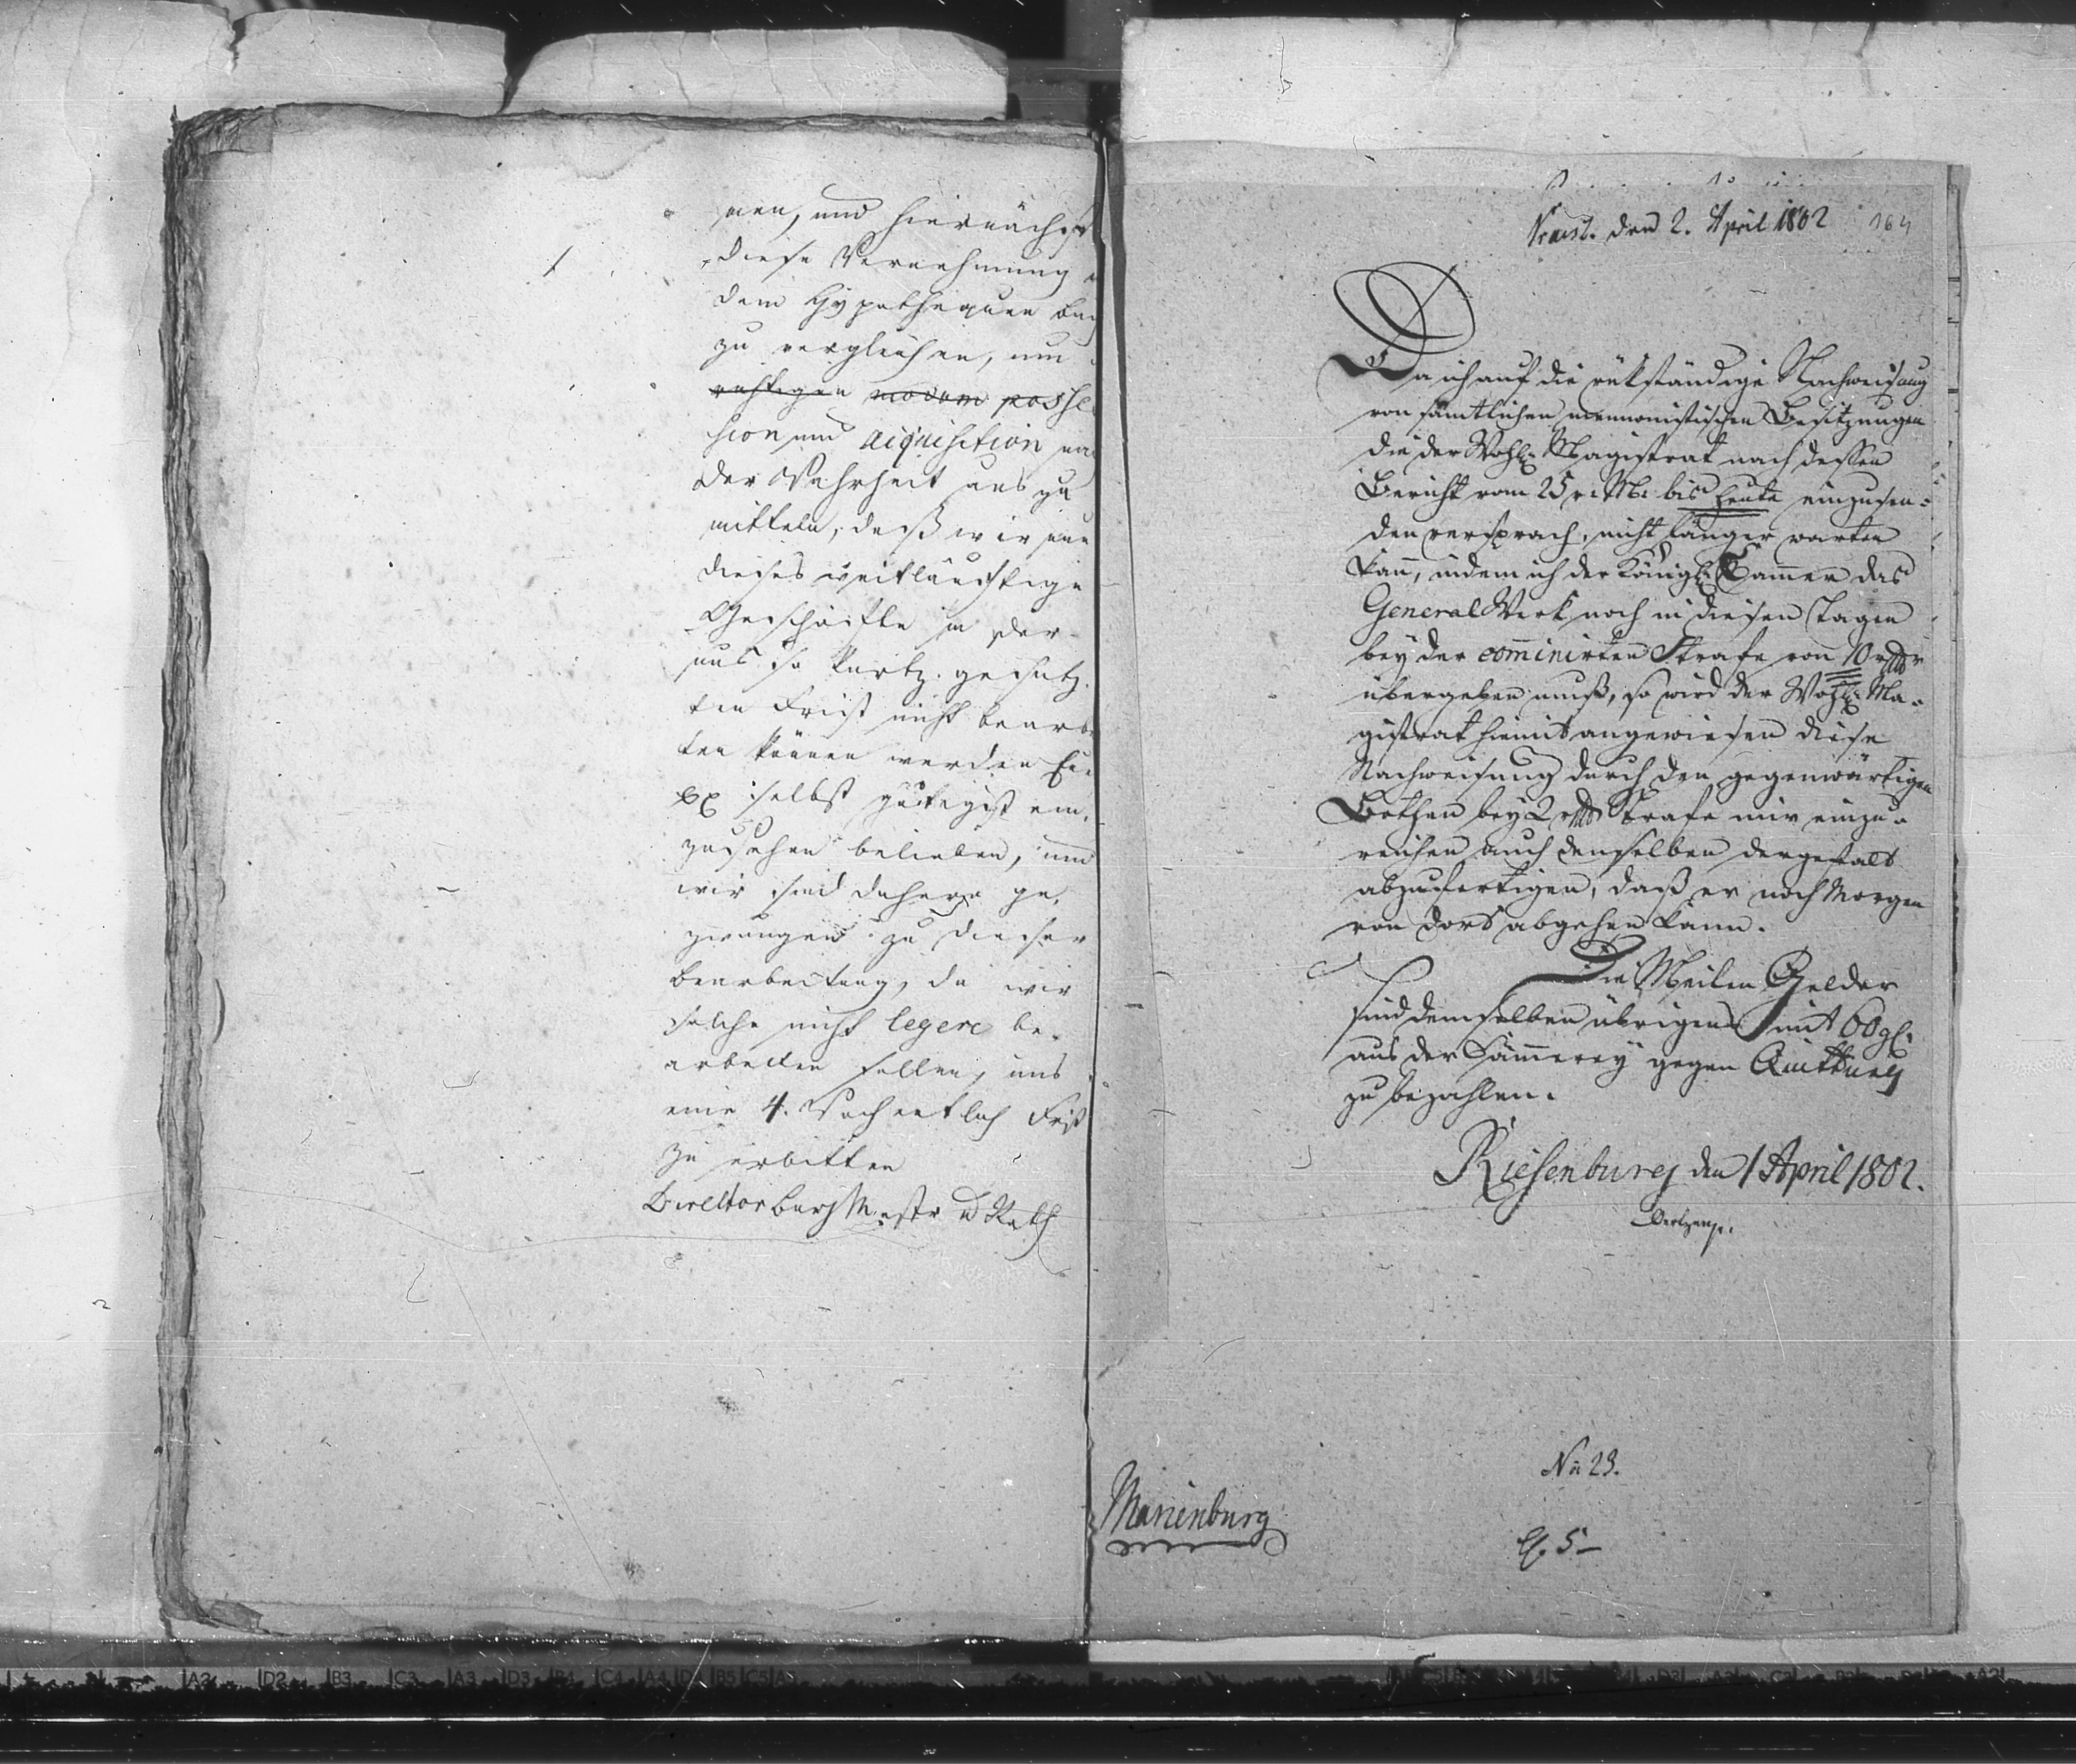 nen, und hiernächst
diese Vernehmung
dem Hypothequen
zu vergleichen, um
modum posse
sion und aiquisition
der Wahrheit aus zu
mitteln, daß wir nun
dieses weitläuftige
Geschäfte in der
uns so kurtz gesetz
ten Frist nicht
ten können werden
selbst gütigst ein
zusehen belieben, und
wir sind dahero ge
zwungen zu dieser
bearbeitung, da wir
solche nicht legere be
arbeiten sollen, uns
eine 4. Wochentlich Frist
zu erbitten
Director burg Mestr u Rath
Praes. den 2. April 1802
164
Da ich auf die rükständige Nachweisung
von sämtlichen mennonistischen Besitzungen
die der Wohll. Magistrat nach dessen
Bericht vom 25 v. M. bis heute einzusen-
den versprach, nicht länger warten
kann, indem ich der Königl. Cammer das
General Werk noch in diesen Tagen
bey der comminirten Strafe von 10 rthlr
übergeben muß, so wird der Wohll. Ma-
gistrat hiemit angewiesen diese
Nachweisung durch den gegenwärtigen
Bothen bey 2 rthlr Strafe mir einzu-
reichen auch denselben dergestalt
abzufertigen, daß er noch Morgen
von dort abgehen kann.
Die Meilen Gelder
sind demselben übrigens mit 60 gl.
aus der Cämmerey gegen Quittung
zu bezahlen.
Riesenburg den 1 April 1802.
No 23.
Marienburg
5 –